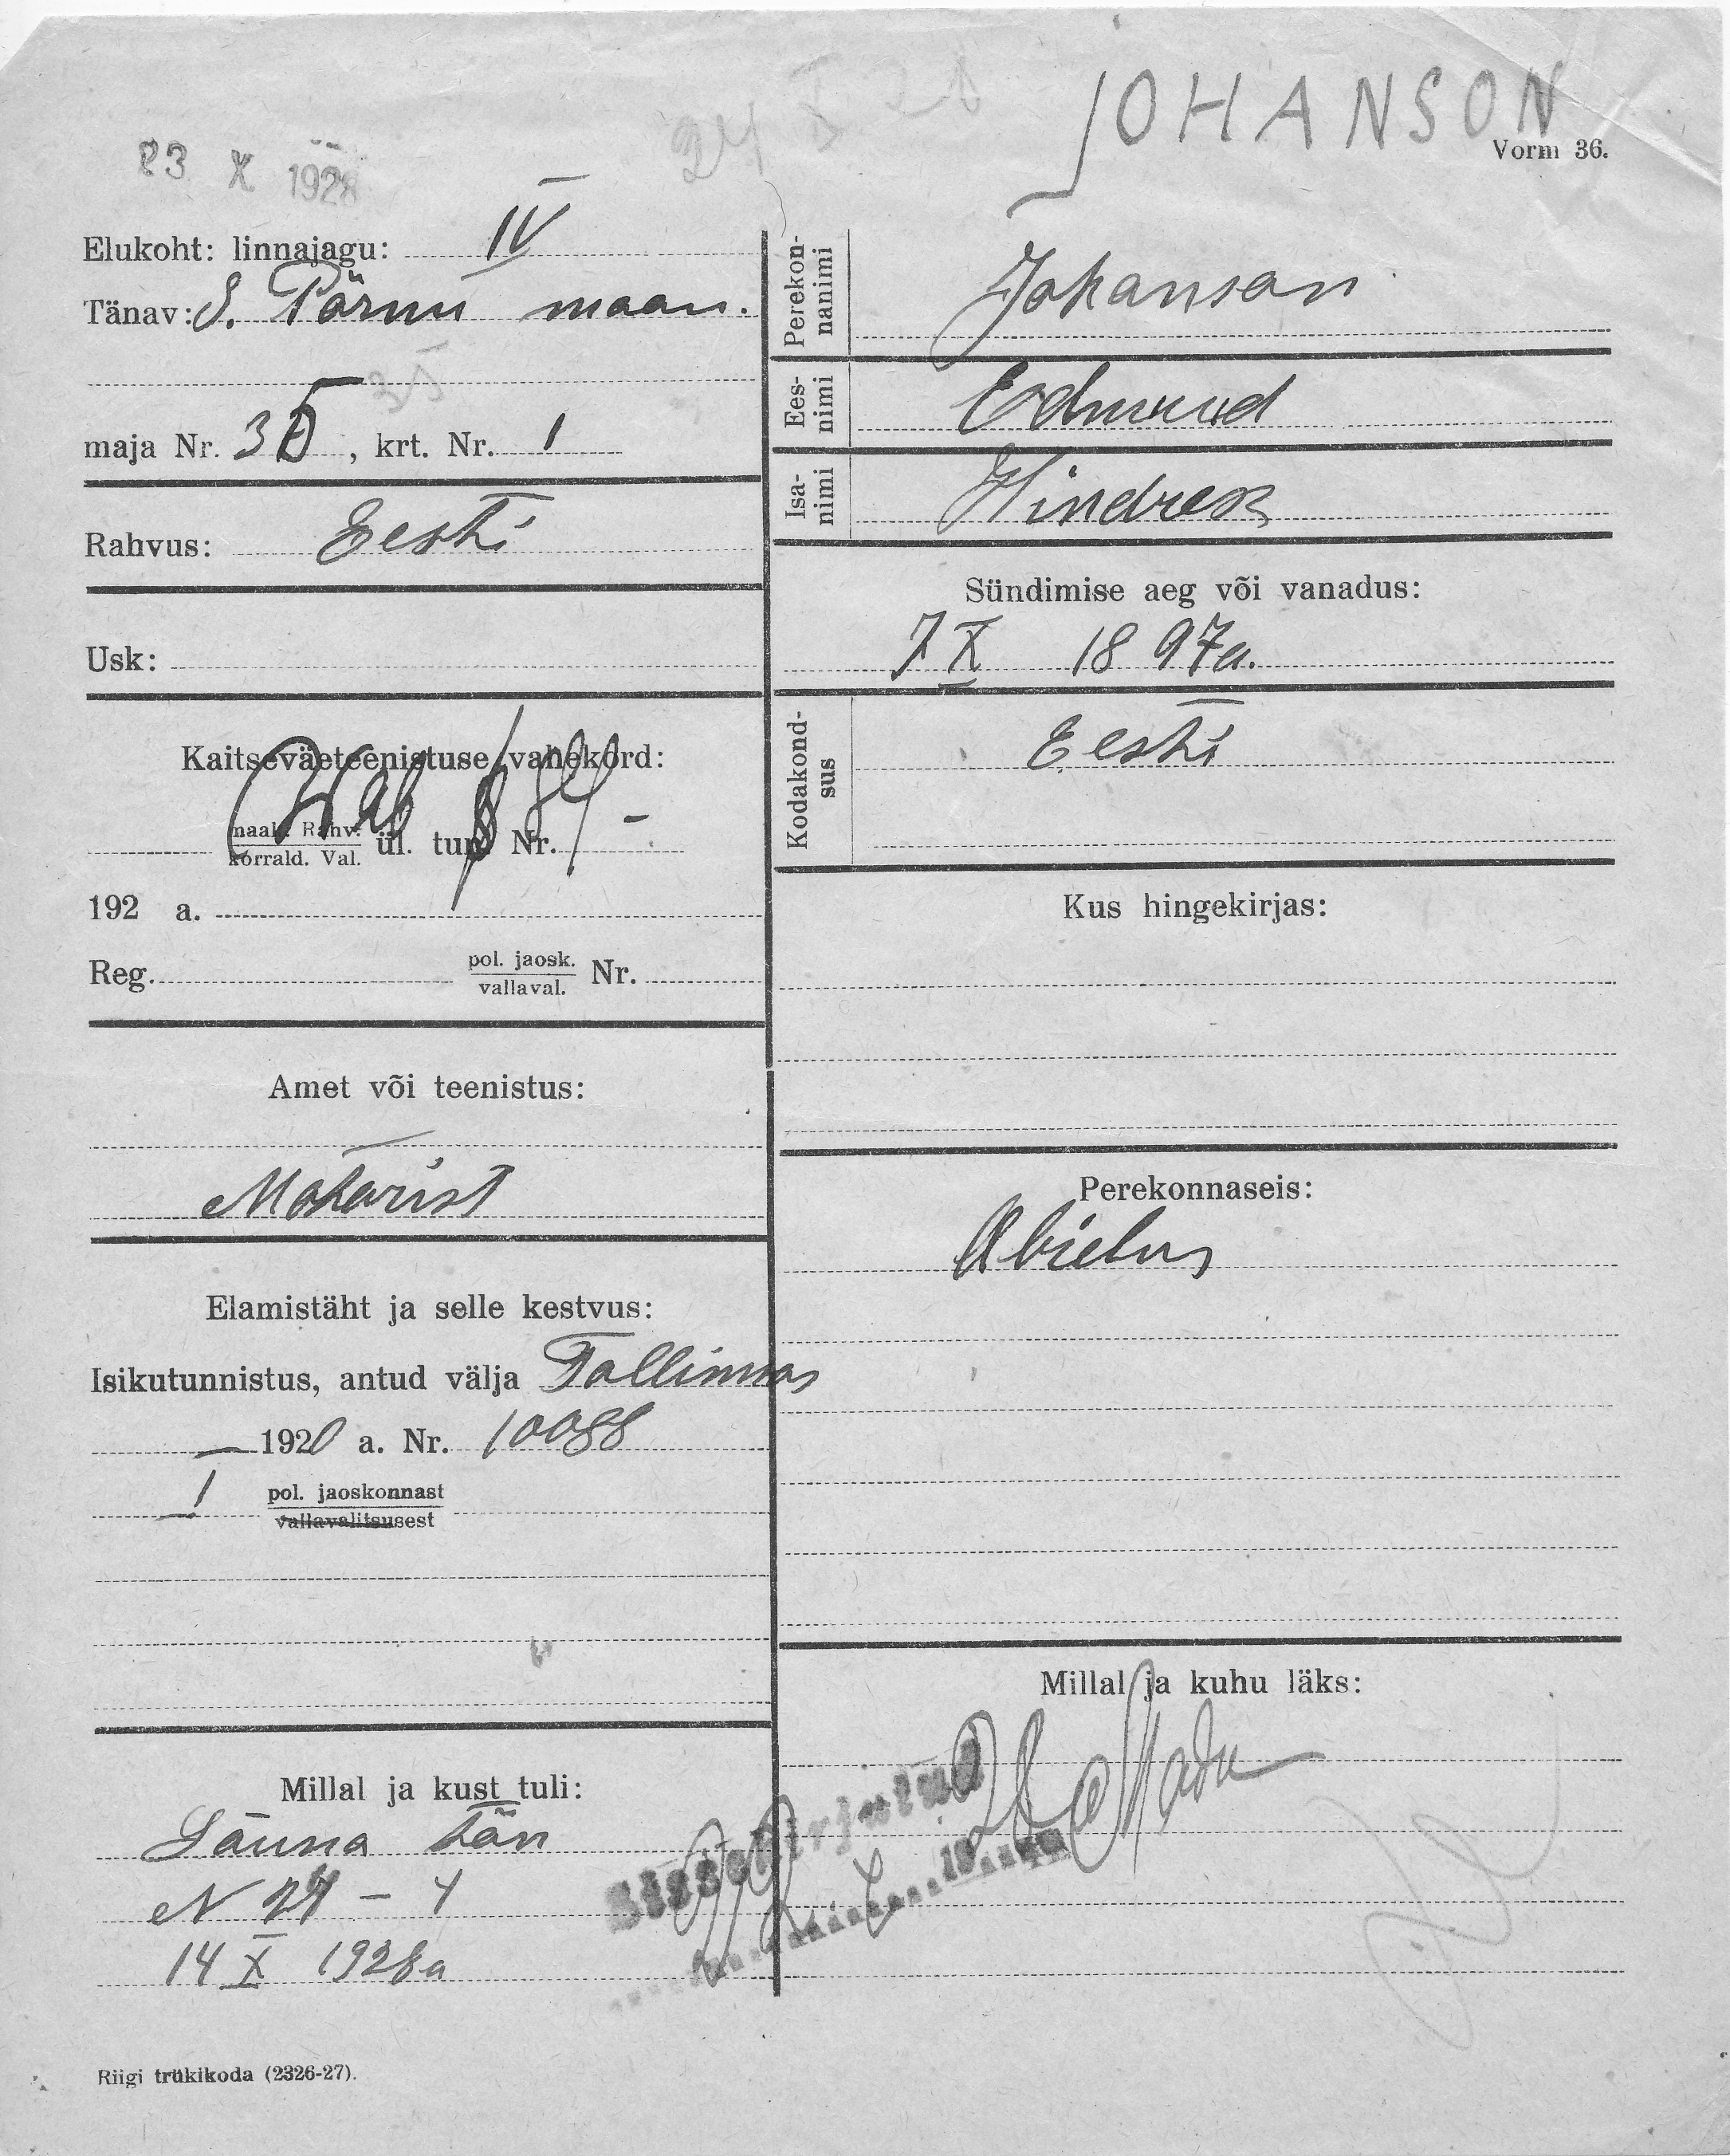 JOHANSON
Vorm 36.
23 X 1928
24 X 28
Elukoht: linnajagu: IV
Tänav: S. Pärnu maan.
35
maja Nr. 35, krt. Nr. 1
Rahvus: Eesti
Usk:
Kaitseväeteenistuse vahekord:
maak. Rahv.
korrald. Val. ül. tun. Nr.
192 a.
Reg. pol. jaosk.
vallaval. Nr.
Amet või teenistus:
Motorist
Elamistäht ja selle kestvus:
Isikutunnistus, antud välja Tallinnas
— 1920 a. Nr. 10088
1 pol. jaoskonnast
vallavalitsusest
Millal ja kust tuli:
Lõuna tän
N 27 - 4
14 X 1928 a
Riigi trükikoda (2326-27).
Perekon-
nanimi Johanson
Ees-
nimi Edmund
Isa-
nimi Hindrek
Sündimise aeg või vanadus:
7 X 1897 a.
Kodakond-
sus Eesti
Kus hingekirjas:
Perekonnaseis:
Abielus
Millal ja kuhu läks:
Sissekirjutud